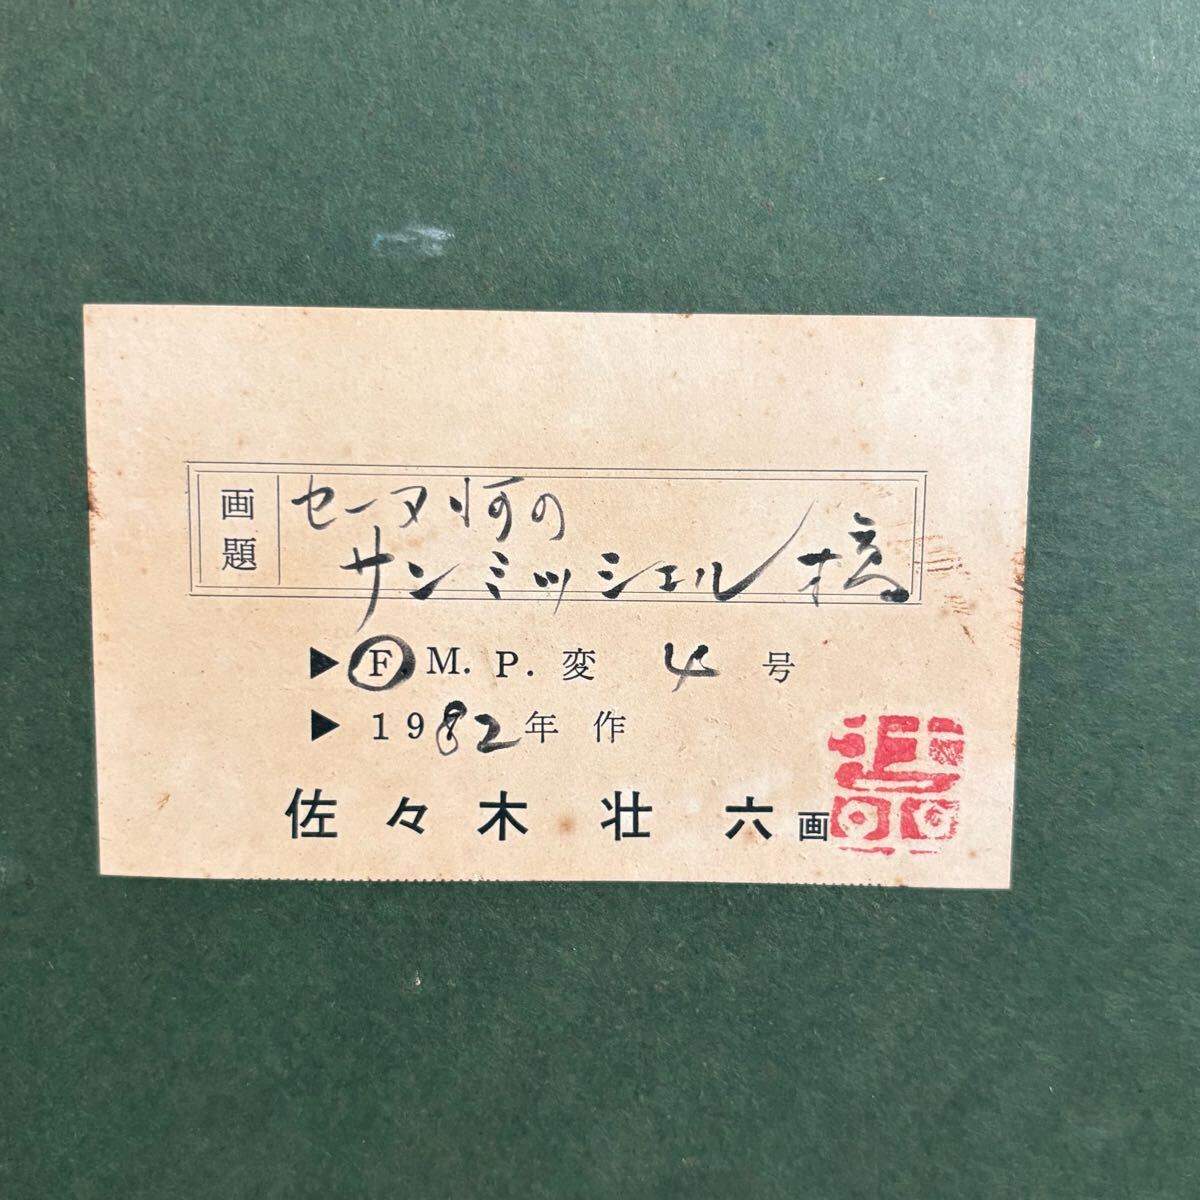 画題
セーヌ河の
サンミッシェル橋
▶ F. M. P. 変 4 号
▶ 1982年 作
佐々木 壮 六 画